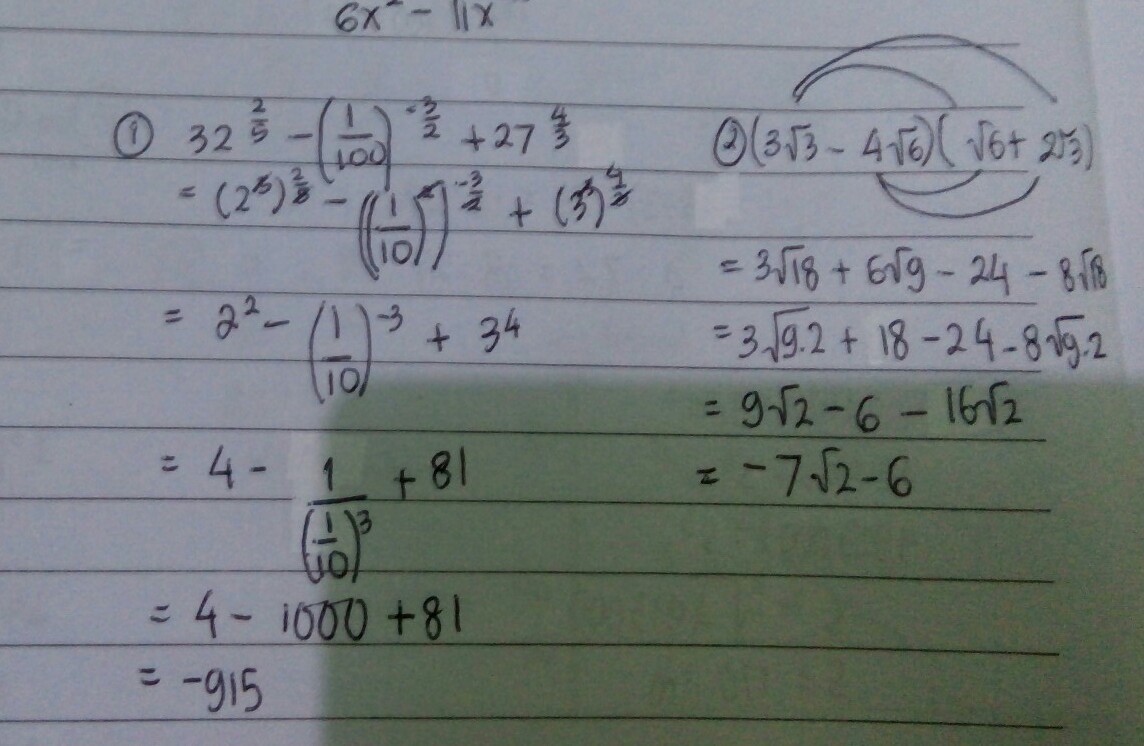 6x² - 11x
① 32^(2/5) - (1/100)^(-3/2) + 27^(4/3)
= (2⁵)^(2/5) - ((1/10)²)^(-3/2) + (3³)^(4/3)
= 2² - (1/10)⁻³ + 3⁴
= 4 - 1/(1/10)³ + 81
= 4 - 1000 + 81
= -915
② (3√3 - 4√6)(√6 + 2√3)
= 3√18 + 6√9 - 24 - 8√18
= 3√9.2 + 18 - 24 - 8√9.2
= 9√2 - 6 - 16√2
= -7√2 - 6